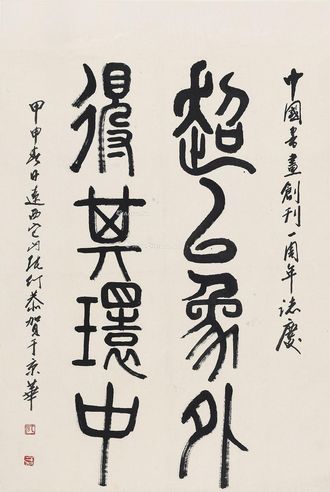 中國書畫創刊一周年誌慶
超以象外
得其環中
甲申春日遼西
恭賀于京華